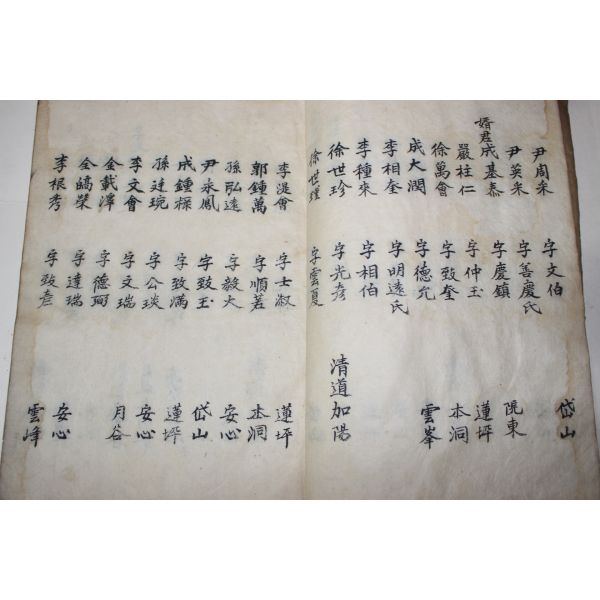 尹周采 字文伯 岱山
尹英采 字善慶氏
婿君成基泰 字慶鎮 院東
嚴柱仁 字仲玉 蓮坪
徐萬會 字致奎 本洞
成大潤 字德允 雲峯
李相奎 字明遠氏
李種來 字相伯
徐世珍 字光彦 清道加陽
徐世瑾 字雲夏
李湜會 字士淑 蓮坪
郭鍾萬 字順若 本洞
孫弘遠 字毅夫 安心
尹永鳳 字致玉 岱山
成鍾 字致滿 蓮坪
孫廷琬 字公琰 安心
李文會 字文瑞 月谷
金載澤 字德弼
全鎬榮 字達瑞 安心
李根孝 字致彦 雲峰